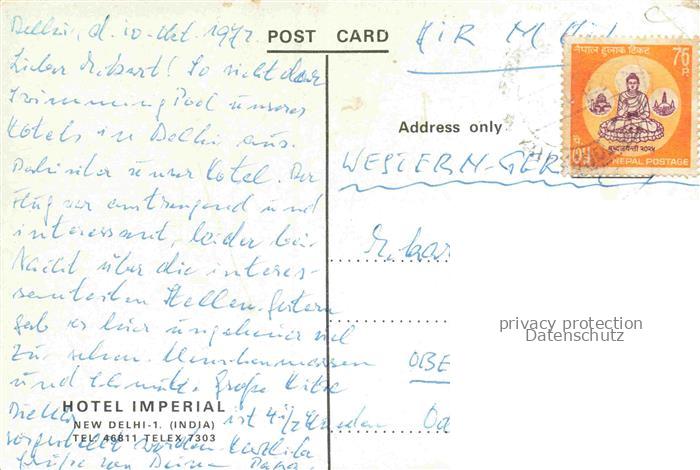 Delhi, d. 10. Okt. 1972
POST CARD
AIR MAIL
Lieber Eckart! So sieht der
Swimming Pool unseres
Hotels in Delhi aus.
Dahinter unser Hotel. Der
Flug war anstrengend und
interessant, leider bei
Nacht über die interes-
santesten Stellen. Gestern
gab es hier ungeheuer viel
zu sehen. Menschenmassen
und Schmutz. Große Hitze
Die Uhr ist 4 1/2 Stunden
vorgestellt worden. Herzliche
Grüße von Deinem Papa.
HOTEL IMPERIAL
NEW DELHI-1. (INDIA)
TEL. 46811 TELEX 7303
नेपाल हुलाक टिकट
75
P.
बुद्धजयन्ती २०२४
७५
पै.
NEPAL POSTAGE
Address only
WESTERN-GER
OBE
privacy protection
Datenschutz